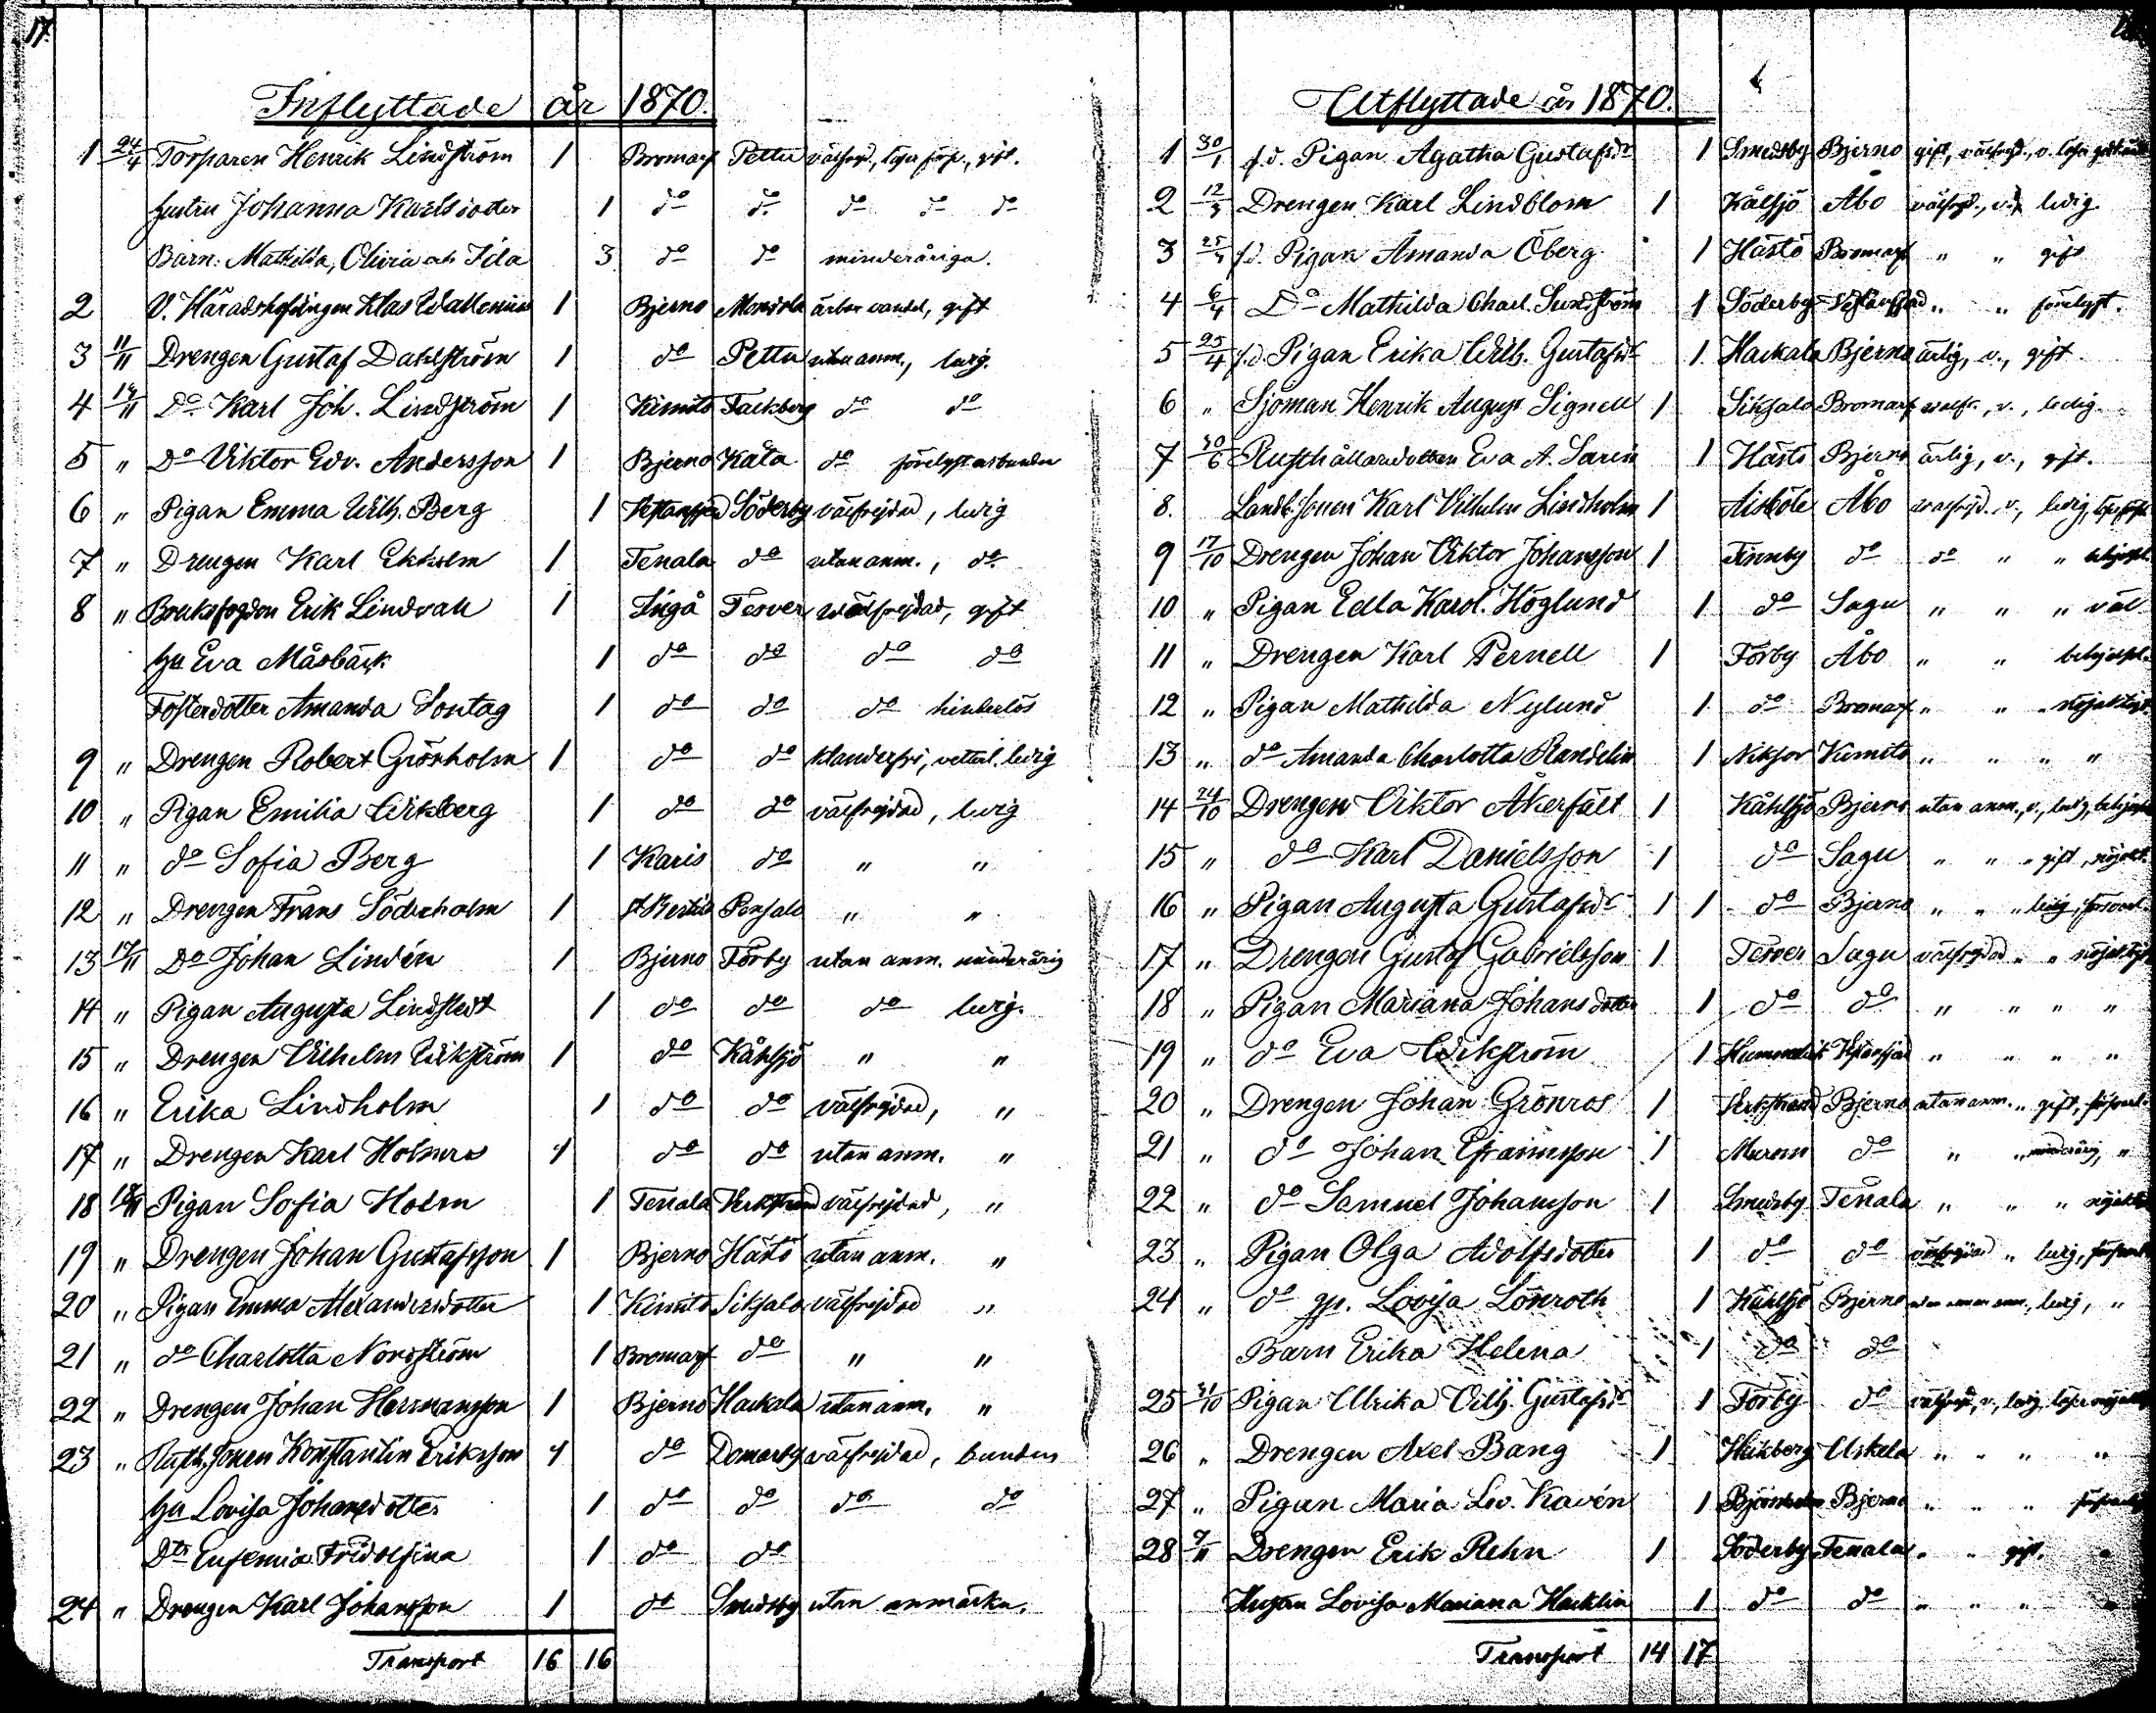 17.
Inflyttade år 1870.
1 24/4 Torparen Henrik Lindström 1 Bromarf Pettu välfrejd, läser förs., gift.
hustru Johanna Karlsdotter 1 do do do do do
Barn: Mathilda, Olivia och Ida 3 do do minderåriga.
2 V. Häradshöfdingen Klas Wallenius 1 Bjerno ärbar vandel, gift
3 11/11 Drengen Gustaf Dahlström 1 do Pettu utan anm., ledig.
4 Do Karl Joh. Lindström 1 Kimito Tackberg do do
5 " Do Viktor Edv. Andersson 1 Bjerno Kåta do
6 " Pigan Emma Wilh. Berg 1 Söderby välfrejdad, ledig
7 " Drengen Karl Ekholm 1 Tenala do utan anm., do
8 " Bruksfogden Erik Lindvall 1 Ingå Terver välfrejdad, gift
hu Eva Måsbäck 1 do do do do
Fosterdotter Amanda Sontag 1 do do do hinderlös
9 " Drengen Robert Grönholm 1 do do klanderfri, ledig
10 " Pigan Emilia Wikberg 1 do do välfrejdad, ledig
11 " do Sofia Berg 1 Karis do " "
12 " Drengen Frans Söderholm 1 Persalo " "
13 Do Johan Lindén 1 Bjerno Förby utan anm. minderårig
14 " Pigan Augusta Lindstedt 1 do do do ledig.
15 " Drengen Vilhelm Wikström 1 do Kåhlsjö " "
16 " Erika Lindholm 1 do do välfrejdad, "
17 " Drengen Karl 1 do do utan anm. "
18 Pigan Sofia Holm 1 Tenala Verkstrand välfrejdad, "
19 " Drengen Johan Gustafsson 1 Bjerno Hästö utan anm. "
20 " Pigan Emma Alexandersdotter 1 Kimito Siksalo välfrejdad "
21 " do Charlotta Nordström 1 Bromarf do " "
22 " Drengen Johan Hermansson 1 Bjerno Hackala utan anm. "
23 " Konstantin Eriksson 1 do välfrejdad, bunden
hu Lovisa Johansdotter 1 do do do do
Dtr Eufemia Fridolfina 1 do do
24 " Drengen Karl Johansson 1 do Smedsby utan anmärkn.
Transport 16 16
Utflyttade år 1870.
1 30/1 f.d. Pigan Agatha Gustafsdr 1 Smedsby Bjerno gift, välfrejd., v.
2 12/3 Drengen Karl Lindblom 1 Kålsjö Åbo välfrejd., v., ledig
3 f.d. Pigan Amanda Öberg 1 Hästö Bromarf " " gift
4 6/4 Do Mathilda Charl. Sundström 1 Söderby " "
5 25/4 f.d. Pigan Erika Wilh. Gustafsdr 1 Hackala Bjerno ärlig, v., gift
6 " Sjöman Henrik August Signell 1 Siksalo Bromarf välfr., v., ledig
7 Rusthållaredottern Eva A. Sarin 1 Hästö Bjerno ärlig, v., gift.
8. Landb. sonen Karl Vilhelm Lindholm 1 Aisböle Åbo v., ledig,
9 17/10 Drengen Johan Viktor Johansson 1 Finnby do do " "
10 " Pigan Edla Karol. Höglund 1 do Sagu " " " väl
11 " Drengen Karl Pernell 1 Förby Åbo " "
12 " Pigan Mathilda Nylund 1 do Bromarf " " "
13 " do Amanda Charlotta Randelin 1 Niksor Kimito " " " "
14 24/10 Drengen Viktor Åkerfält 1 Kåhlsjö Bjerno utan anm., v., ledig,
15 " do Karl Danielsson 1 do Sagu " " " gift,
16 " Pigan Augusta Gustafsdr 1 1 do Bjerno " " " ledig,
17 " Drengen Gustaf Gabrielsson 1 Terver Sagu välfrejdad " "
18 " Pigan Mariana Johansdotter 1 do do " " " "
19 " do Eva Wikström 1 " " " "
20 " Drengen Johan Grönros 1 Verkstrand Bjerno utan anm. " gift,
21 " do Johan Efraimsson 1 do " " minderårig, "
22 " do Samuel Johansson 1 Smedsby Tenala " " "
23 " Pigan Olga Adolfsdotter 1 do do välfrejdad " ledig,
24 " do gp. Lovisa Lönroth 1 Kåhlsjö Bjerno ledig, "
Barn Erika Helena 1 do do
25 31/10 Pigan Ulrika Vilh. Gustafsdr 1 Förby do välfrejd, v., ledig,
26 " Drengen Axel Bang 1 Uskela " " " "
27 " Pigan Maria Lov. Kavén 1 Bjerno " " "
28 Drengen Erik Rehn 1 Söderby Tenala " " gift. "
Hustrun Lovisa Mariana Hacklin 1 do do " " " "
Transport 14 17